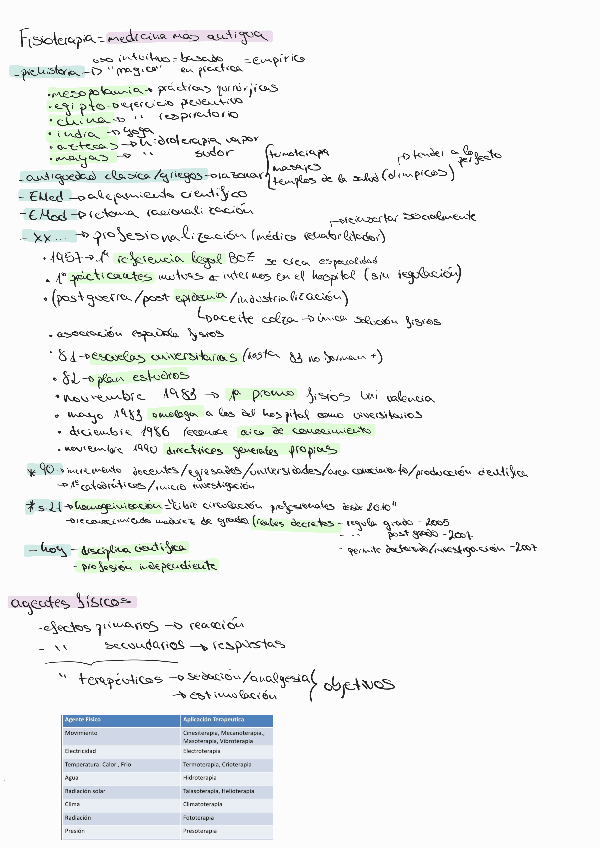 Fisioterapia = medicina más antigua
uso intuitivo = basado = empírico
- prehistoria -> "mágico" en práctica
• mesopotamia -> prácticas quirúrjicas
• egipto -> ejercicio preventivo
• china -> " respiratorio
• india -> yoga
• aztecas -> hidroterapia vapor
• mayas -> " sudor
termoterapia
masajes
templos de la salud (olímpicos)
-> tender a lo perfecto
- antigüedad clásica/griegos -> razonar
- EMed -> alejamiento científico
- EMod -> retoma racionalización
-> reinsertar socialmente
- XX... -> profesionalización (médico rehabilitador)
• 1957 -> 1ª referencia legal BOE se crea especialidad
• 1º practicantes mutuas + internos en el hospital (sin regulación)
• (postguerra/post epidemia/industrialización)
-> aceite colza -> única solución fisios
• asociación española fisios
• 81 -> escuelas universitarias (hasta 83 no forman +)
• 82 -> plan estudios
• noviembre 1983 -> 1ª promo fisios uni valencia
• mayo 1983 omologa a los del hospital como universitarios
• diciembre 1986 reconoce área de conocimiento
• noviembre 1990 directrices generales propias
* 90 -> incremento docentes/egresados/universidades/área conocimiento/producción científica
-> 1º catedráticos/inicio investigación
* s.21 -> homogeinización = "libre circulación profesionales desde 2010"
-> reconocimiento madurez de grado (reales decretos - regula grado - 2005
- " post grado - 2007
- permite doctorado/investigación - 2007
- hoy - disciplina científica
- profesión independiente
agentes físicos =
- efectos primarios -> reacción
- " secundarios -> respuestas
" terapéuticos -> sedación/analgesia
-> estimulación
objetivos
Agente Físico Aplicación Terapeutica
Movimiento Cinesiterapia, Mecanoterapia,
Masoterapia, Vibroterapia
Electricidad Electroterapia
Temperatura Calor , Frío Termoterapia, Crioterapia
Agua Hidroterapia
Radiación solar Talasoterapia, Helioterapia
Clima Climatoterapia
Radiación Fototerapia
Presión Presoterapia